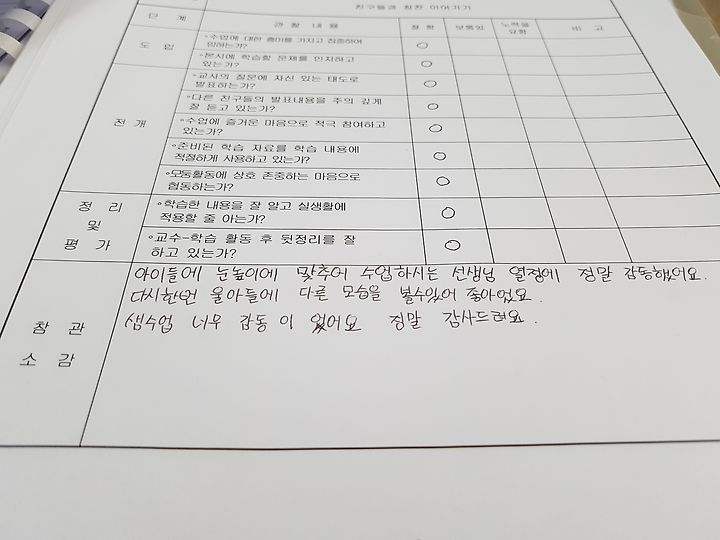 친구들과 칭찬 이야기
단 계 관 찰 내 용 잘 함 보통임 노력을 요함 비 고
도 입 ◦수업에 대한 흥미를 가지고 집중하여 임하는가? ○
◦본시에 학습할 문제를 인지하고 있는가? ○
전 개 ◦교사의 질문에 자신 있는 태도로 발표하는가? ○
◦다른 친구들의 발표내용을 주의 깊게 잘 듣고 있는가? ○
◦수업에 즐거운 마음으로 적극 참여하고 있는가? ○
◦준비된 학습 자료를 학습 내용에 적절하게 사용하고 있는가? ○
◦모둠활동에 상호 존중하는 마음으로 협동하는가? ○
정 리 및 평 가 ◦학습한 내용을 잘 알고 실생활에 적용할 줄 아는가? ○
◦교수-학습 활동 후 뒷정리를 잘 하고 있는가? ○
참 관 소 감
아이들에 눈높이에 맞추어 수업하시는 선생님 열정에 정말 감동했어요.
다시한번 울아들에 다른 모습을 볼수있어 좋아었요.
샘수업 너무 감동 이 었어요 정말 감사드려요.